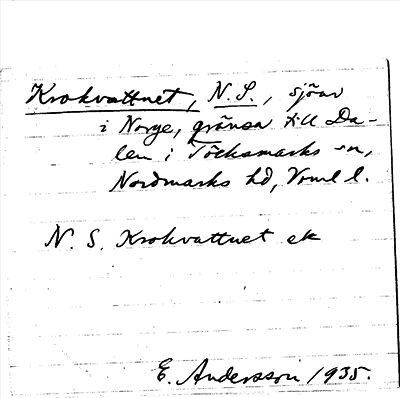 Krokvattnet, N. S., sjöar
i Norge, gränsa till Da-
len i Töcksmarks sn,
Nordmarks hd, Vrml l.
N. S. Krokvattnet ek
E. Andersson 1935.